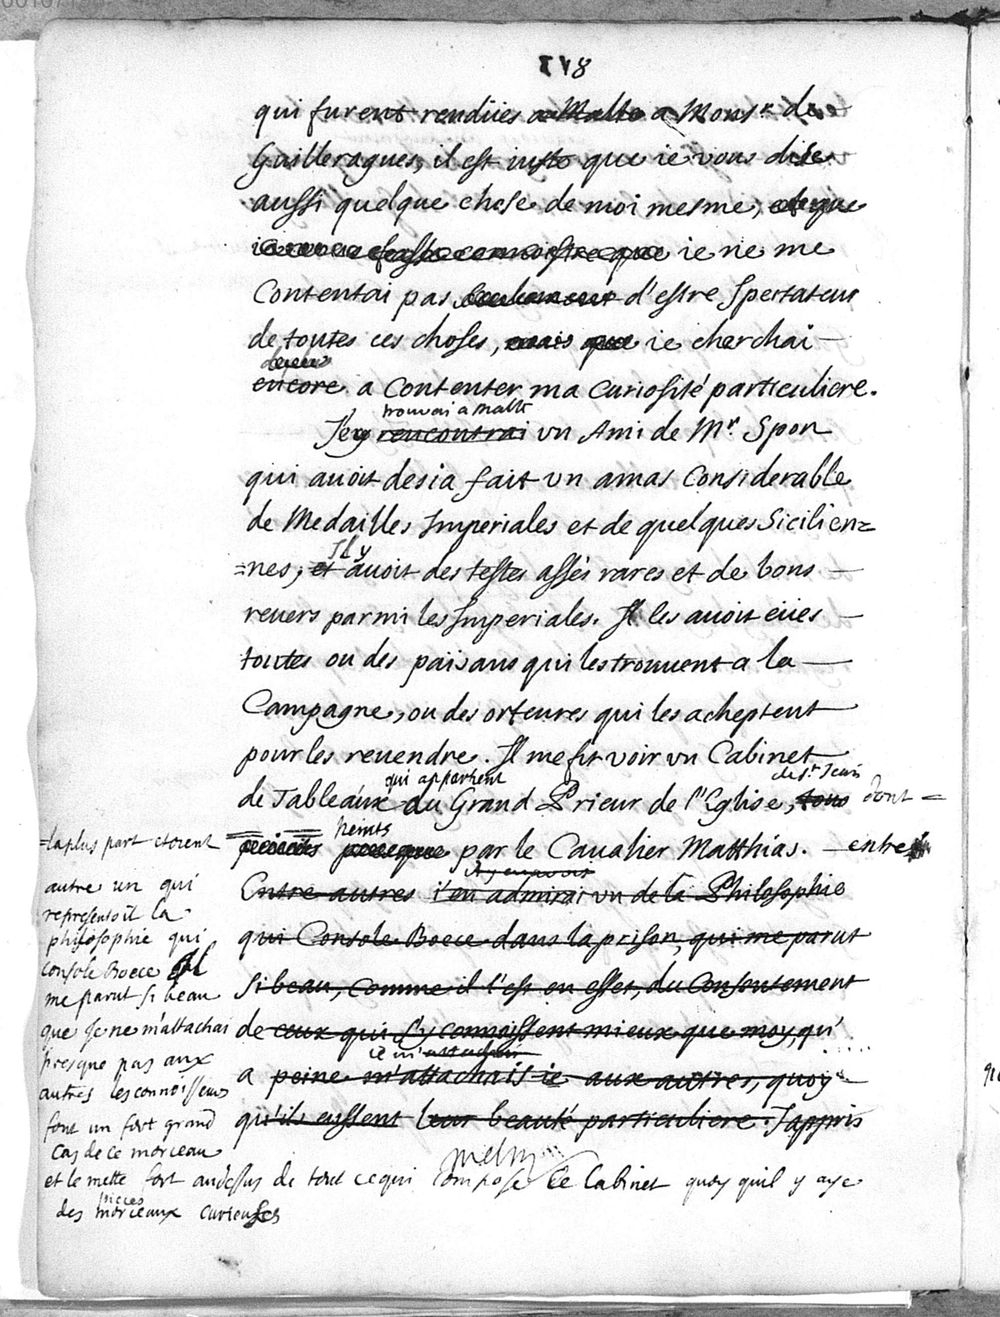 118
qui furent rendües a Malte a Mons.r de
Guilleragues, il est iuste que ie vous dise
aussi quelque chose de moi mesme, et que
ie vous fasse connoistre que ie ne me
Contentai pas d'estre Spectateur
de toutes ces choses, mais que ie cherchai
encore a Contenter ma Curiosité particuliere.
trouvai a Malte
J'ey rencontrai vn Ami de M.r Spon
qui auoit desia fait vn amas Considerable
de Medailles Imperiales et de quelques Sicilien=
Il y
=nes, et auoit des testes assés rares et de bons
reuers parmi les Imperiales. Il les auoit eües
toutes ou des païsans qui les trouuent a la
Campagne, ou des orfeures qui les acheptent
pour les reuendre. Il me fit voir vn Cabinet
qui appartient de St Jean
de Tableaux du Grand Prieur de l'Eglise, tous dont =
peints
=la plus part etoient
par le Caualier Matthias. entre
Entre autres i'en admirai vn de la Philosophie
qui Console Boece dans la prison, qui me parut
si beau, comme il l'est en effet, du Consentement
de ceux qui s'y connoissent mieux que moy, qu'
ie m'attachai
a peine m'attachais ie aux autres, quoy
qu'ils eussent leur beauté particuliere. J'appris
autre un qui
representoit la
philosophie qui
console Boece Il
me parut si beau
que Je ne m'attachai
presque pas aux
autres les connoisseurs
font un fort grand
Cas de ce morceau
et le mette fort audessus de tout ce qui compose le Cabinet quoy quil y aye
pieces
des morceaux curieuses